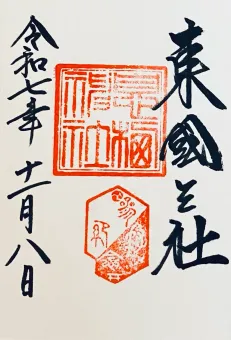 東國三社
息栖神社
令和七年 十一月八日